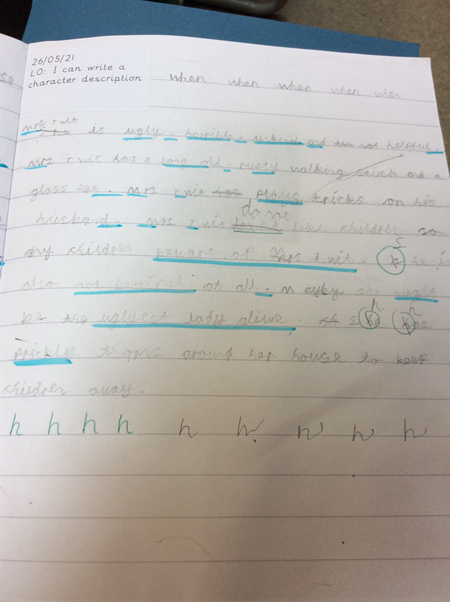 26/05/21
LO: I can write a
character description
when when when when when
mrs twit is ugly, horrible, unkind and not helpful.
mrs twit has a long, old, rusty walking stick and a
glass eye. Mrs twit plays tricks on his
do not
husband. Mrs twit like children so
any children beware of Mrs twit. S he is
also not beautiful at all. might
be the ugliest lady alive. She has
prickly thorns around her house to keep
children away.
h h h h h h h h h